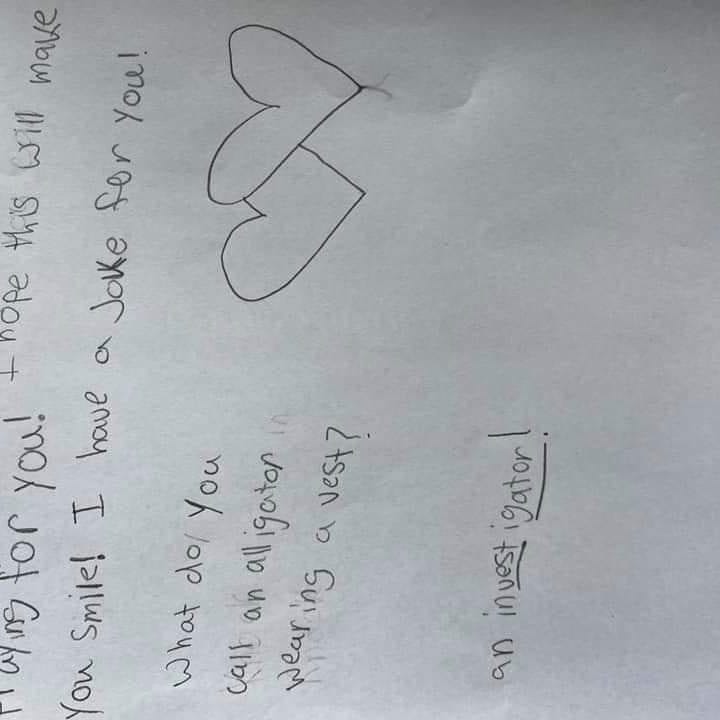 Praying for you! I hope this will make
you smile! I have a Joke for you!
What do you
call an alligator
wearing a vest?
an investigator!